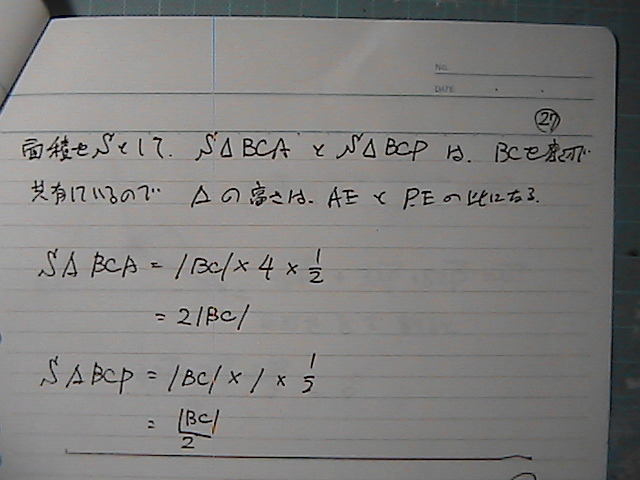 No.
DATE
㉗
面積をSとして、S△BCAとS△BCPは、BCを底辺で
共有しているので △の高さは、AEとPEの比になる。
S△BCA = |BC| × 4 × 1/2
= 2|BC|
S△BCP = |BC| × 1 × 1/2
= |BC|/2